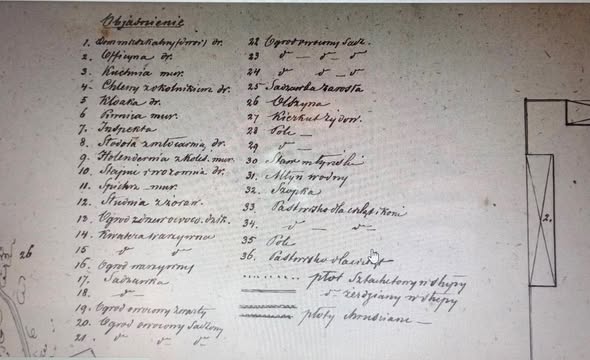 Objaśnienie
1. Dom mieszkalny (dwór) dr.
2. Oficyna dr.
3. Kuchnia mur.
4. Chlewy z kolnikiem dr.
5. Kloaka dr.
6. mur.
7. Inspekta
8. Stodoła z młocarnią dr.
9. Holendernia z mur.
10. Stajnie i wozownia dr.
11. Spichrz mur.
12. Studnia z
13. Ogród dzik.
14. Kwatera warzywna
15. d° d°
16. Ogród warzywny
17. Sadzawka
18. d°
19. Ogród owocowy
20. Ogród owocowy sadzony
21. d° d° d°
22 Ogród owocowy Sadz.
23 d° — d° — d°
24 d° d° — d°
25 Sadzawka zarosła
26 Olszyna
27 Kierkut żydow.
28 Pole —
29 d° —
30 Staw młyński
31. Młyn wodny
32. Szopka
33 Pastwisko dla cieląt i koni
34. d° — d°
35 Pole
36. Pastwisko dla
płot Sztachetowy w słupy
d° żerdziany w słupy
płoty chruściane —
26
2.